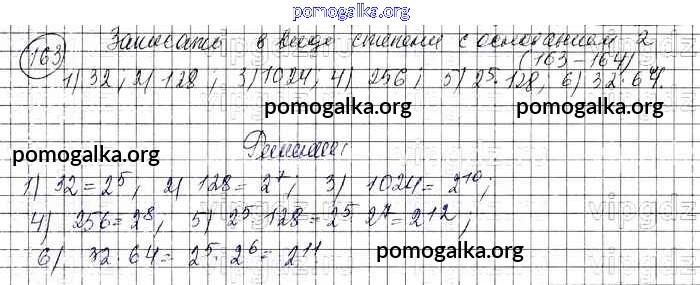 pomogalka.org
163 Записать в виде степени с основанием 2
(163-164)
1) 32; 2) 128; 3) 1024; 4) 256; 5) 2⁵·128; 6) 32·64.
pomogalka.org pomogalka.org
pomogalka.org Решение:
1) 32 = 2⁵; 2) 128 = 2⁷; 3) 1024 = 2¹⁰;
4) 256 = 2⁸; 5) 2⁵·128 = 2⁵·2⁷ = 2¹²;
6) 32·64 = 2⁵·2⁶ = 2¹¹
pomogalka.org